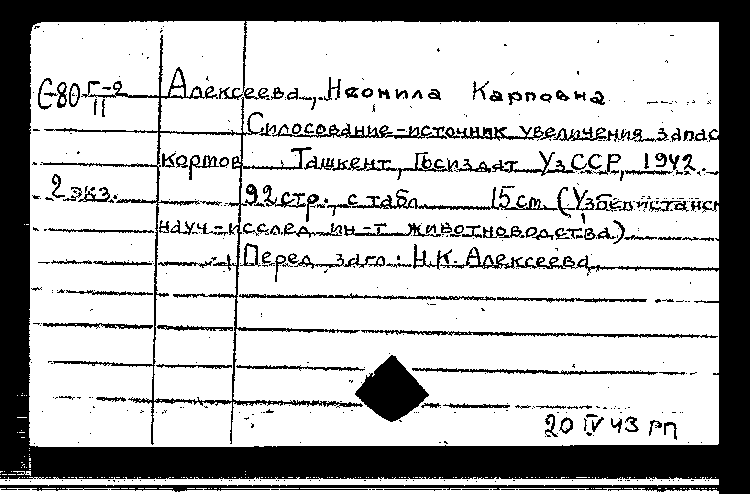 Е-80 Г-9 Алексеева, Неонила Карповна
II
Силосование-источник увеличения запас
кормов Ташкент, Госиздат УзССР, 1942.
2 экз. 92 стр., с табл. 15 см. (Узбекистанск
науч-исслед ин-т животноводства)
Перед загл: Н.К. Алексеева
20 IV 43 РП